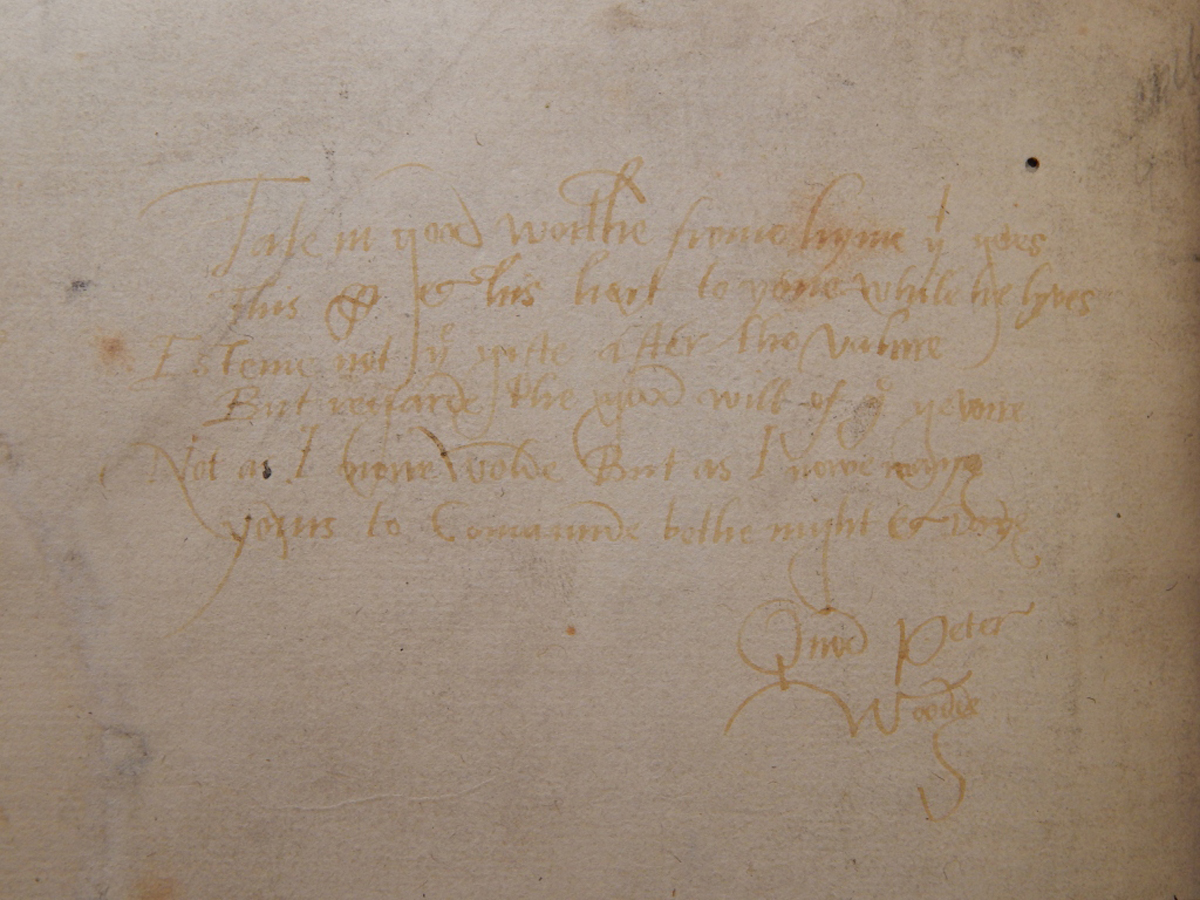 Take in good worthe frome hyme yt geves
this & his hart to youe while he lyves
Esteme not ye gifte after the valure
But regarde the good will of ye gevoure
Not as I woulde But as I nowe maye
yours to Comaunde bothe night & daye
Peter
Woodde